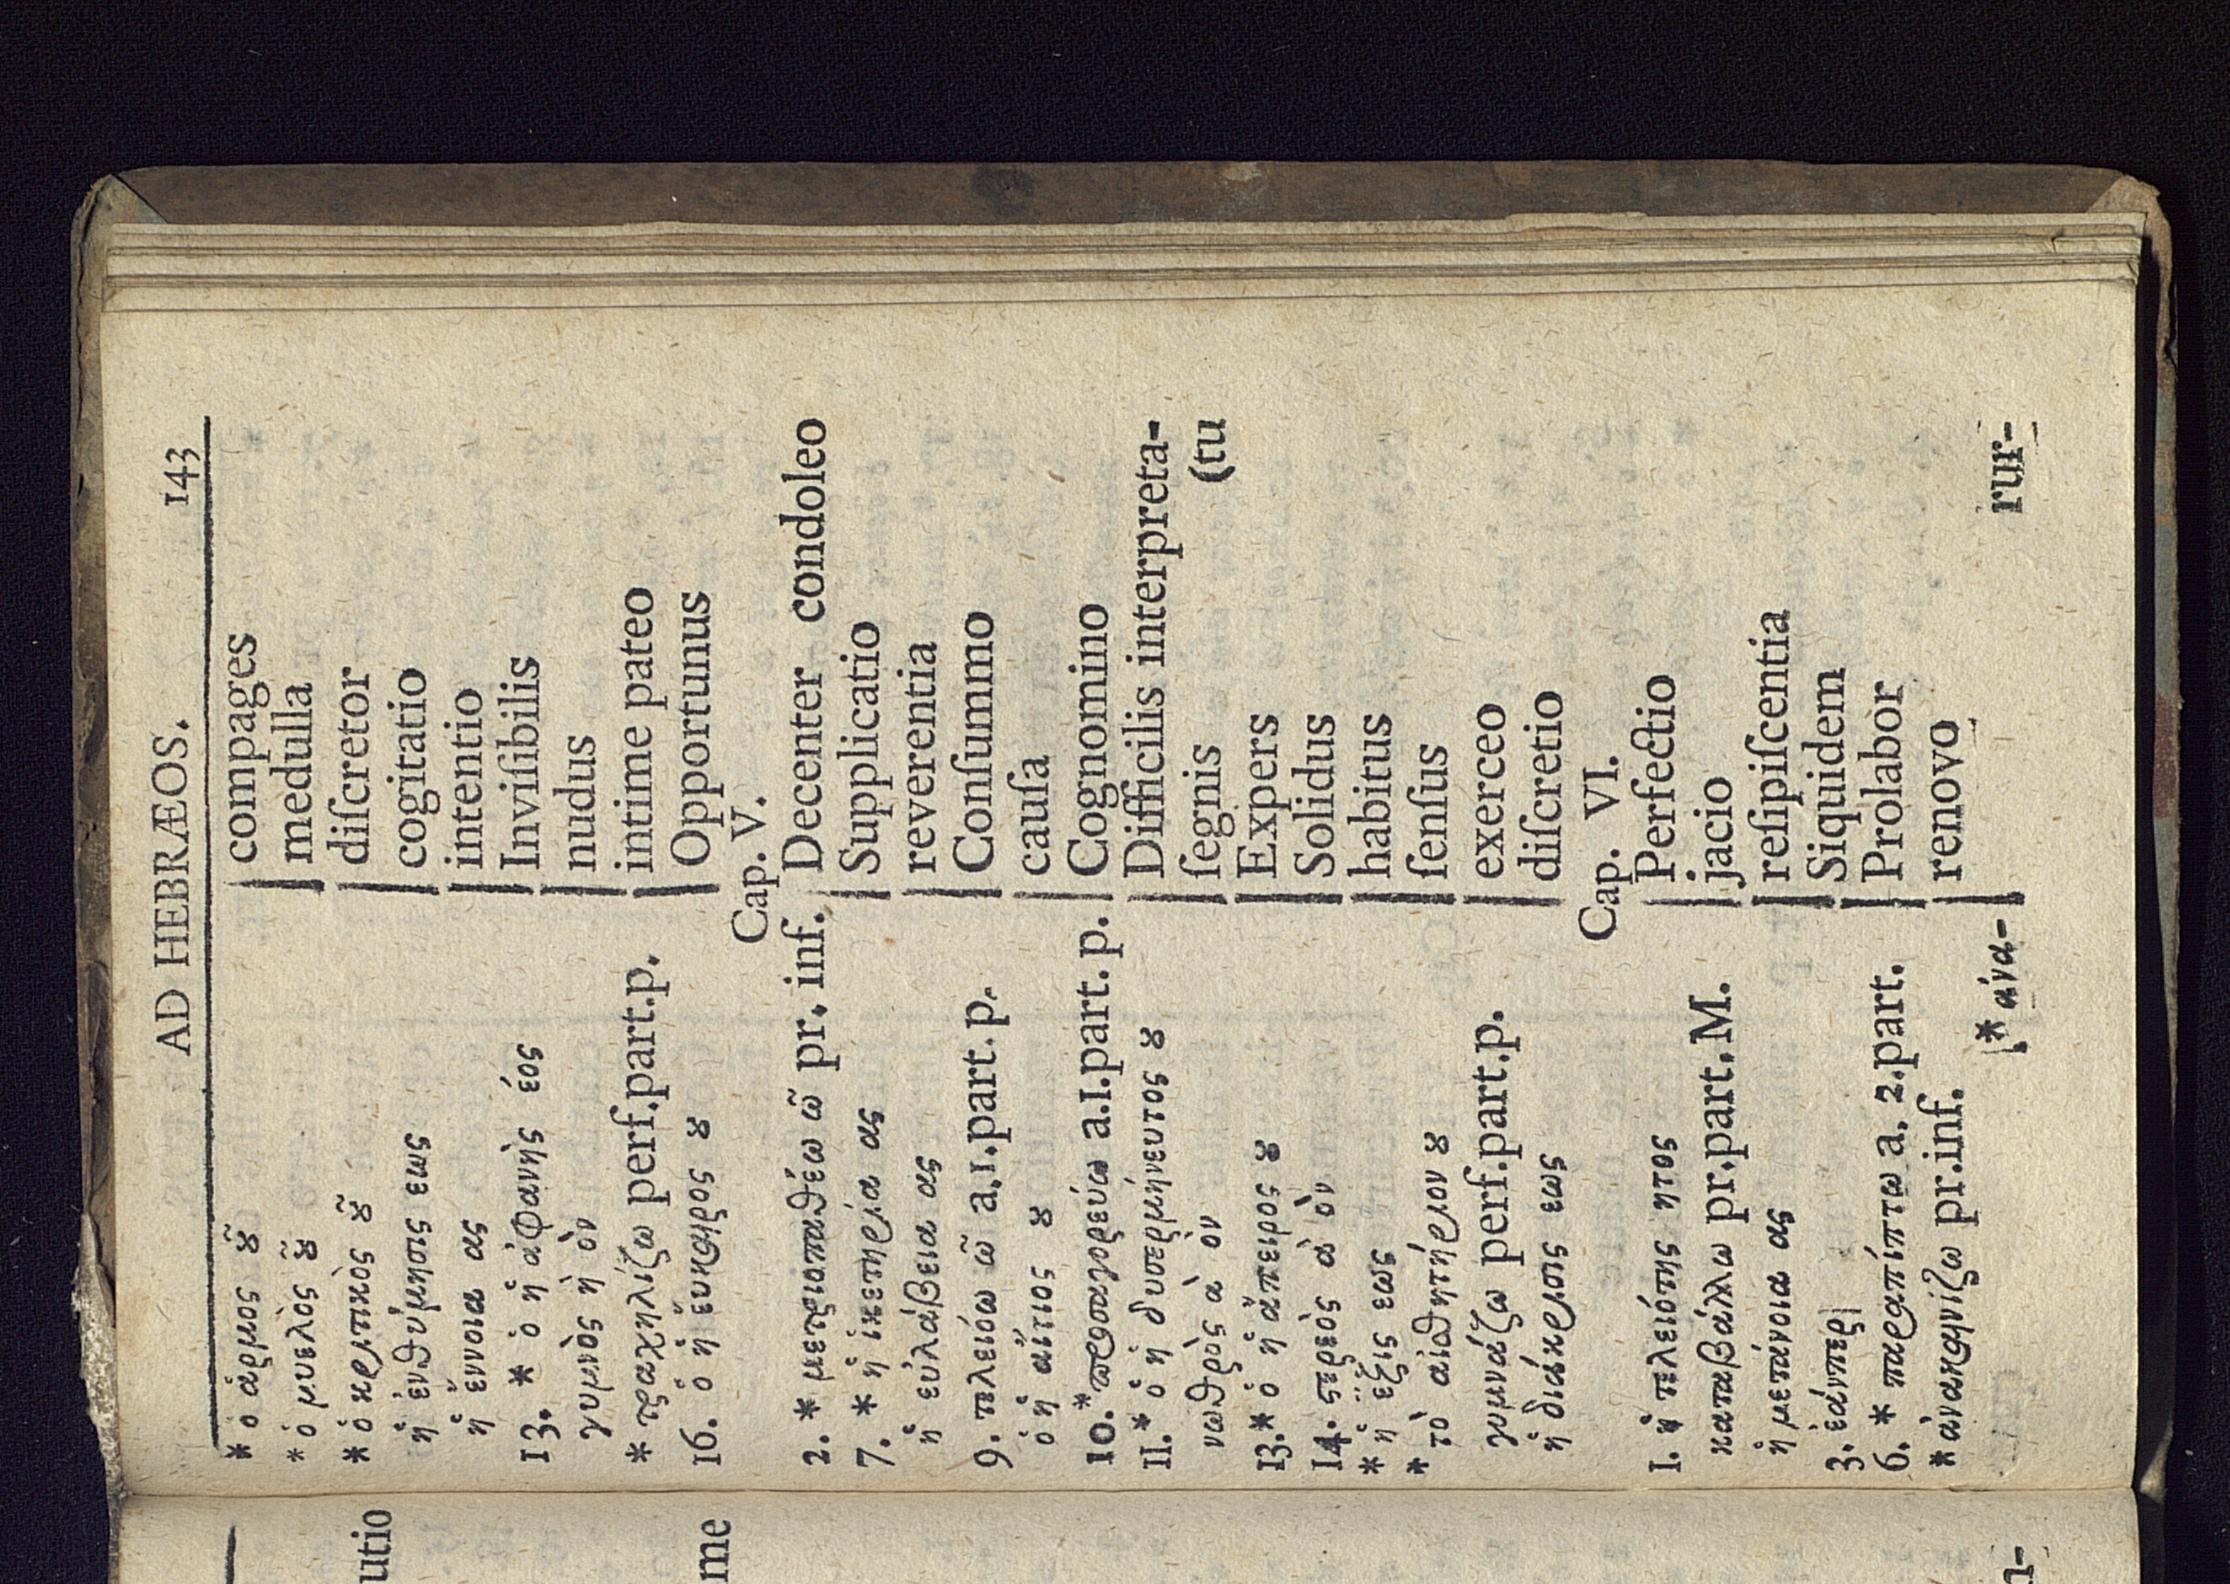 AD HEBRÆOS. 143
* ὁ ἁρμος ȣ͂ | compages
* ὁ μυελὸς ȣ͂ | medulla
* ὁ κριτικὸς ȣ͂ | diſcretor
ἡ ἐνθύμησις εως | cogitatio
ἡ ἔννοια ας | intentio
13. * ὁ ἡ ἀφανὴς έος | Inviſibilis
γυμνὸς ὴ ὸν | nudus
* τραχηλίζω perf.part.p. | intime pateo
16. ὁ ἡ ἔυκαιρος ȣ | Opportunus
Cap. V.
2. * μετριοπαθέω ῶ pr. inf. | Decenter condoleo
7. * ἡ ἱκετηρία ας | Supplicatio
ἡ εὐλάβεια ας | reverentia
9. τελειόω ῶ a.1.part. p. | Conſummo
ὁ ἡ αἴτιος ȣ | cauſa
10.* προσαγορεύω a.1.part. p. | Cognomino
11.* ὁ ἡ δυσερμήνευτος ȣ | Difficilis interpreta-
(tu
νωθρὸς ὰ ὸν | ſegnis
13.* ὁ ἡ ἄπειρος ȣ | Expers
14. στερεὸς ὰ ὸν | Solidus
* ἡ ἕξις εως | habitus
* τὸ αἰσθητήριον ȣ | ſenſus
γυμνάζω perf.part.p. | exerceo
ἡ διάκρισις εως | diſcretio
Cap. VI.
1. ἡ τελειότης ητος | Perfectio
καταβάλλω pr.part.M. | jacio
ἡ μετάνοια ας | reſipiſcentia
3. ἐάνπερ | Siquidem
6. * παραπίπτω a. 2.part. | Prolabor
* ἀνακαινίζω pr.inf. | renovo
[* ἀνα- rur-
utio
me
n-